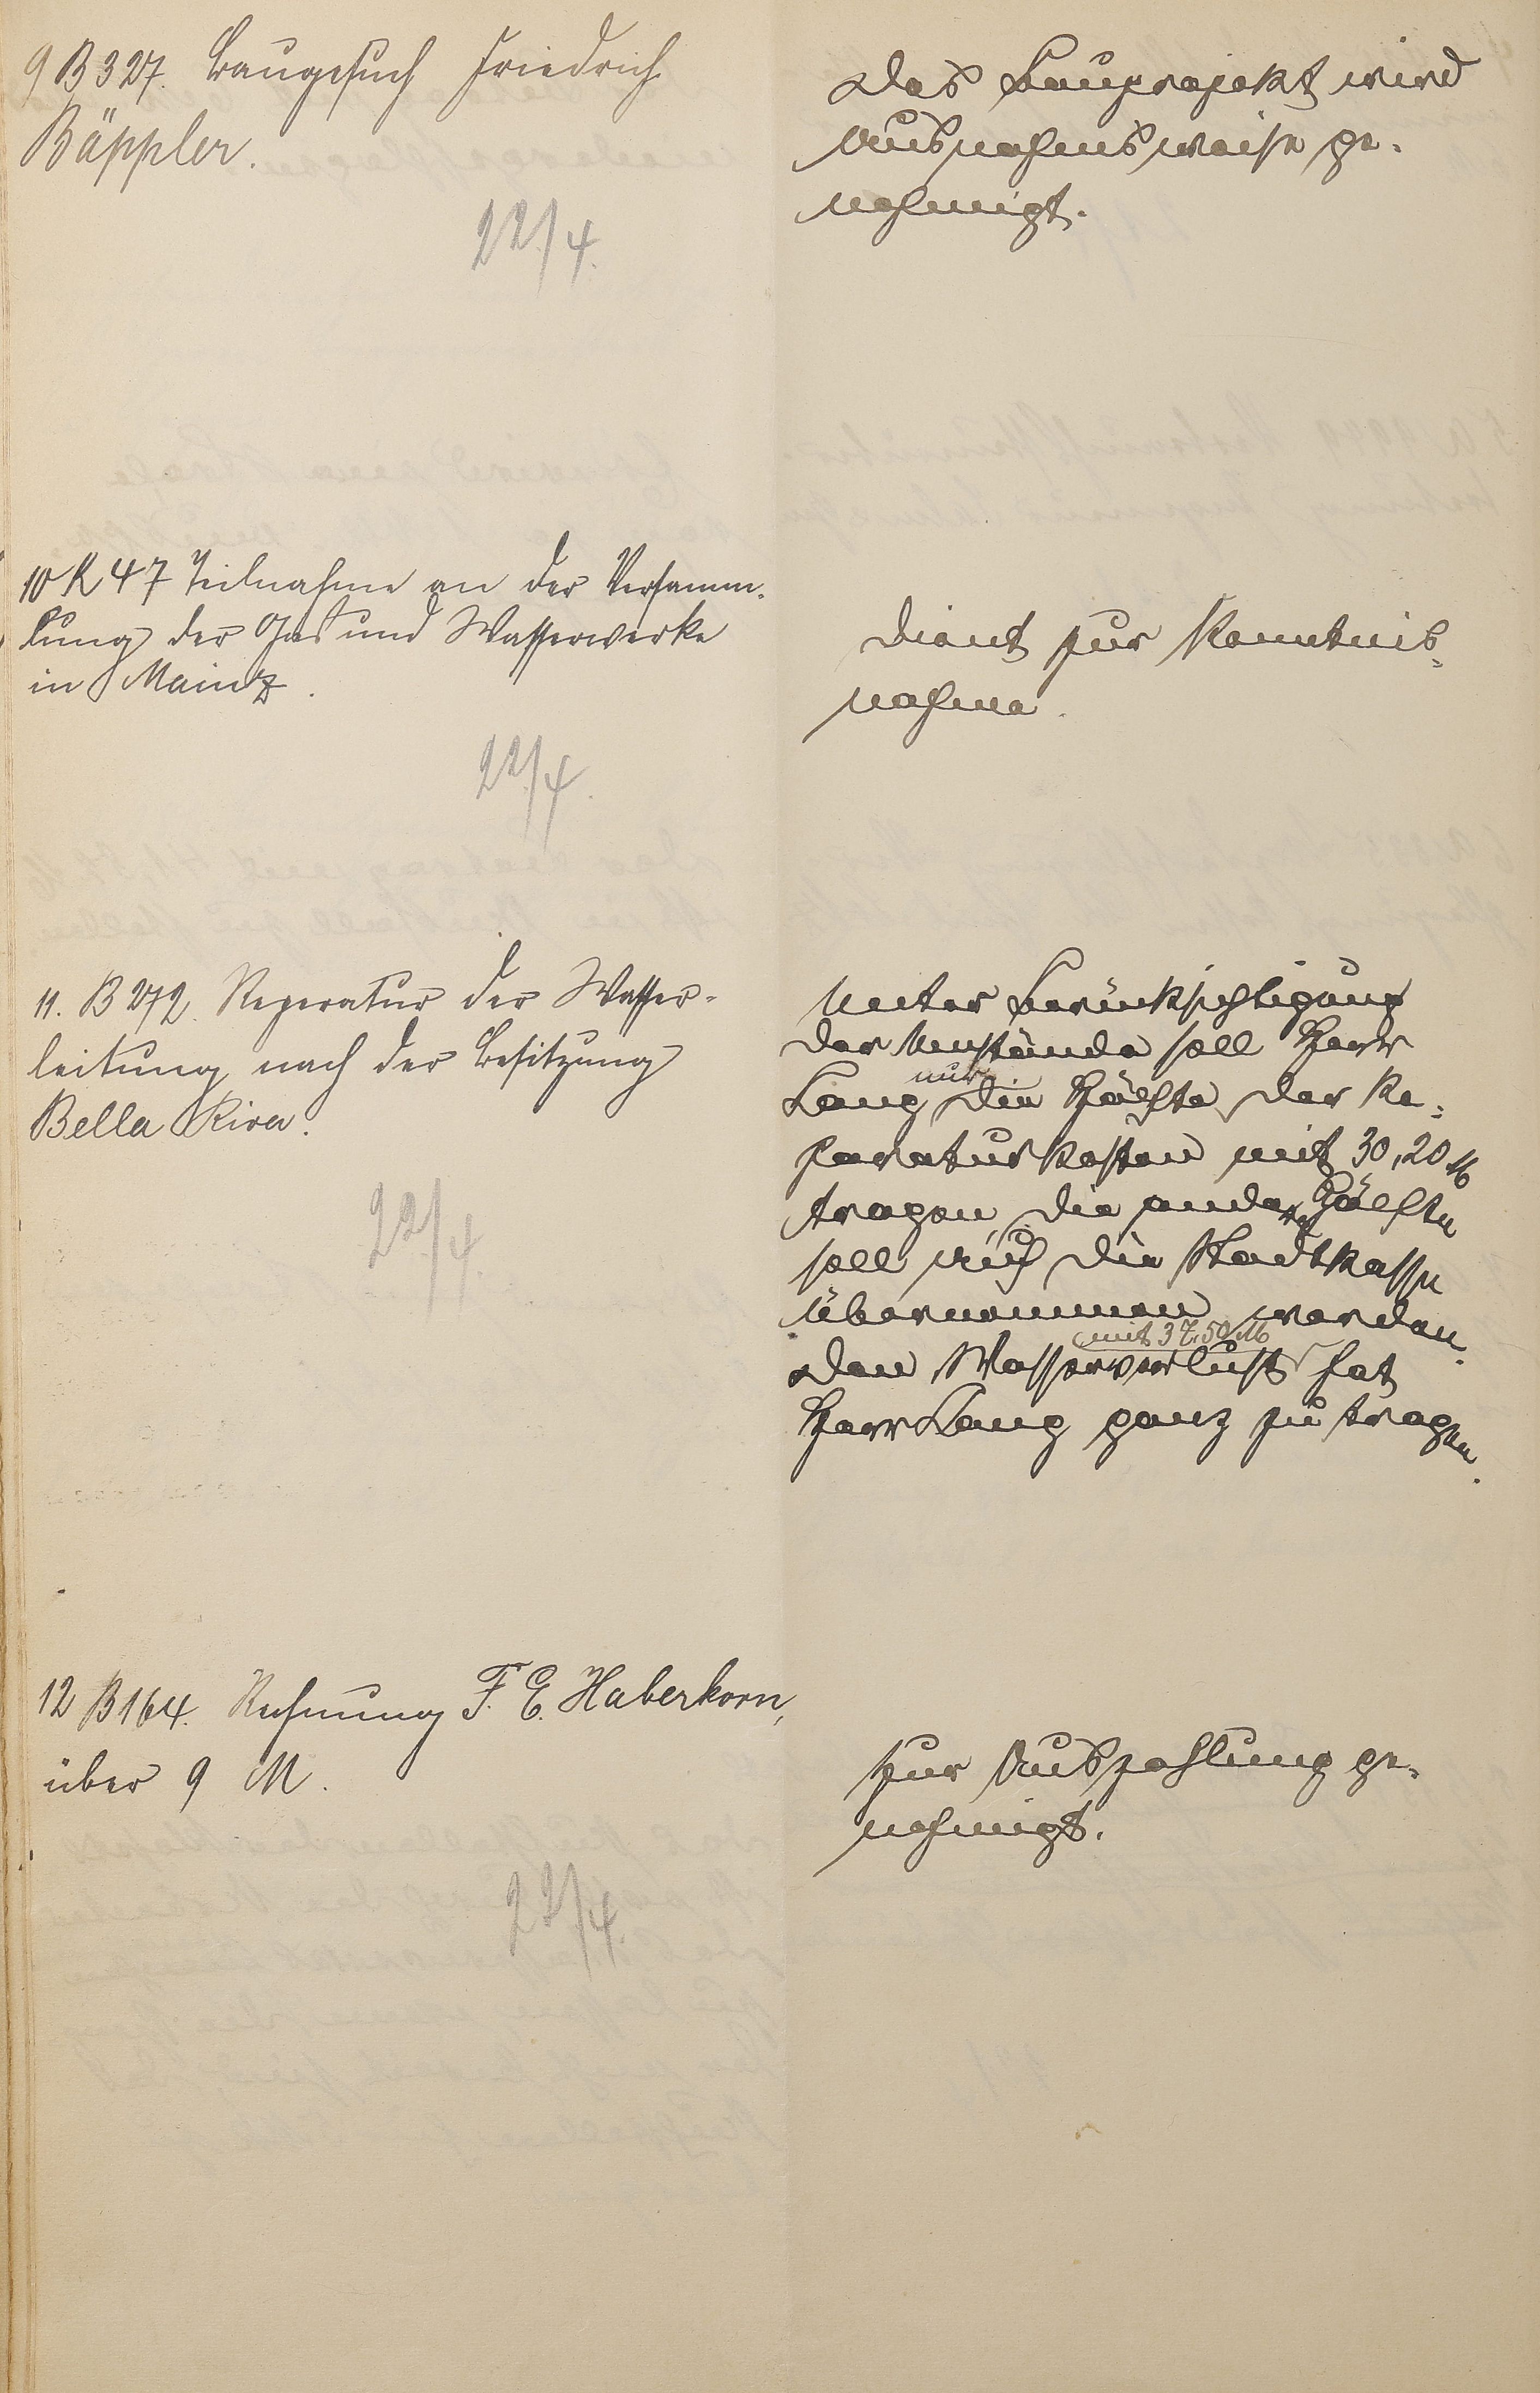 9 B 327. Baugesuch Friedrich
Bäppler.
22/4.
Das Bauprojekt wird
Ausnahmsweise ge-
nehmigt.
10 K 47 Teilnahme an der Versamm-
lung der Gas und Wasserwerke
in Mainz.
22/4.
Dient zur Kenntnis-
nahme.
11. B 272. Reperatur der Wasser-
leitung nach der Besitzung
Bella Riva.
22/4.
Unter Berücksichtigung
der Umstände soll Herr
nur
Lang die Hälfte der Re-
paraturkosten mit 30,20 M
tragen, die andere Hälfte
soll auf die Stadtkasse
übernommen werden.
mit 37,50 M
Den Wasserverlust hat
Herr Lang ganz zu tragen.
12 B 164. Rechnung F. E. Haberkorn,
über 9 M.
22/4.
Zur Auszahlung ge-
nehmigt.